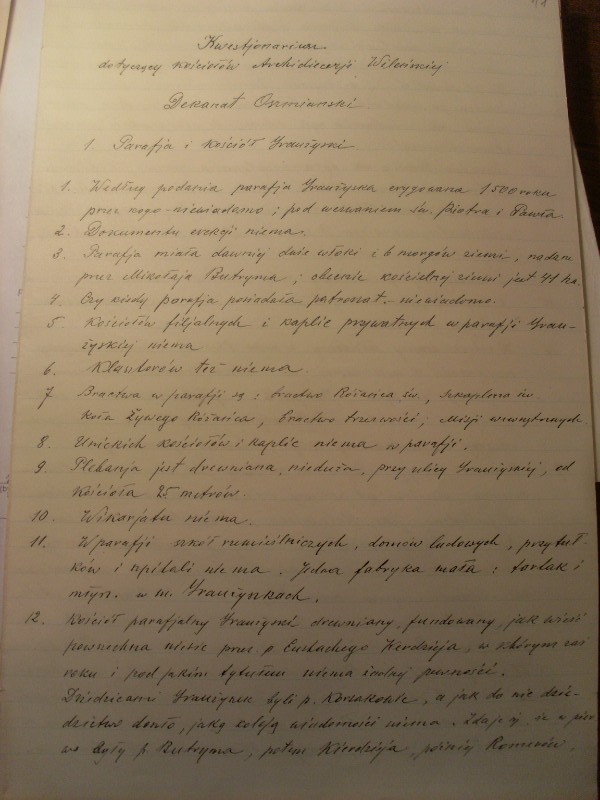 Kwestjonariusz
dotyczący kościołów Archidiecezji Wileńskiej
Dekanat Oszmiański
1. Parafja i kościół Graużyski
1. Według podania parafja Graużyska erygowana 1500 roku
przez kogo - niewiadomo; pod wezwaniem św. Piotra i Pawła.
2. Dokumentu erekcji niema.
3. Parafja miała dawniej dwie włoki i 6 morgów ziemi, nadane
przez Mikołaja Butryma; obecnie kościelnej ziemi jest 41 ha.
4. Czy kiedy parafja posiadała patronat - niewiadomo.
5. Kościołów filjalnych i kaplic prywatnych w parafji Grau-
żyskiej niema
6. Klasztorów też niema.
7 Bractwa w parafji są: bractwo Różańca św., Szkaplerza św.
Koła Żywego Różańca, bractwo trzeźwości, Misji wewnętrznych
8. Unickich kościołów i kaplic niema w parafji.
9. Plebanja jest drewniana, nieduża, przy ulicy Graużyskiej, od
kościoła 25 metrów.
10. Wikarjatu niema.
11. W parafji szkół rzemieślniczych, domów ludowych, przytuł-
ków i szpitali niema. Jedna fabryka mała: tartak i
młyn. w m. Graużynkach.
12. Kościół parafjalny Graużyski drewniany, fundowany, jak wieść
powszechna niesie przez p. Eustachego Kierdzieja, w którym zaś
roku i pod jakim tytułem niema żadnej pewności.
Dziedzicami Graużynek byli p. Korsakowie, a jak do nie dzie-
dzictwo doszło, jaką koleją wiadomości niema. Zdaje się, że w pierw
wo były p. Butryma, potem Kierdzieja, później Romerów.